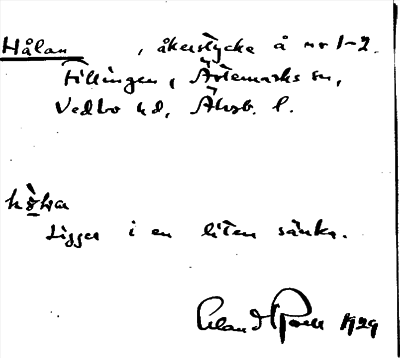 Hålan, åkerstycke å nr 1-2
Fillingen, Ärtemarks sn,
Vedbo hd, Älvsb. l.
Ligger i en liten sänka.
Erland Rosell 1929